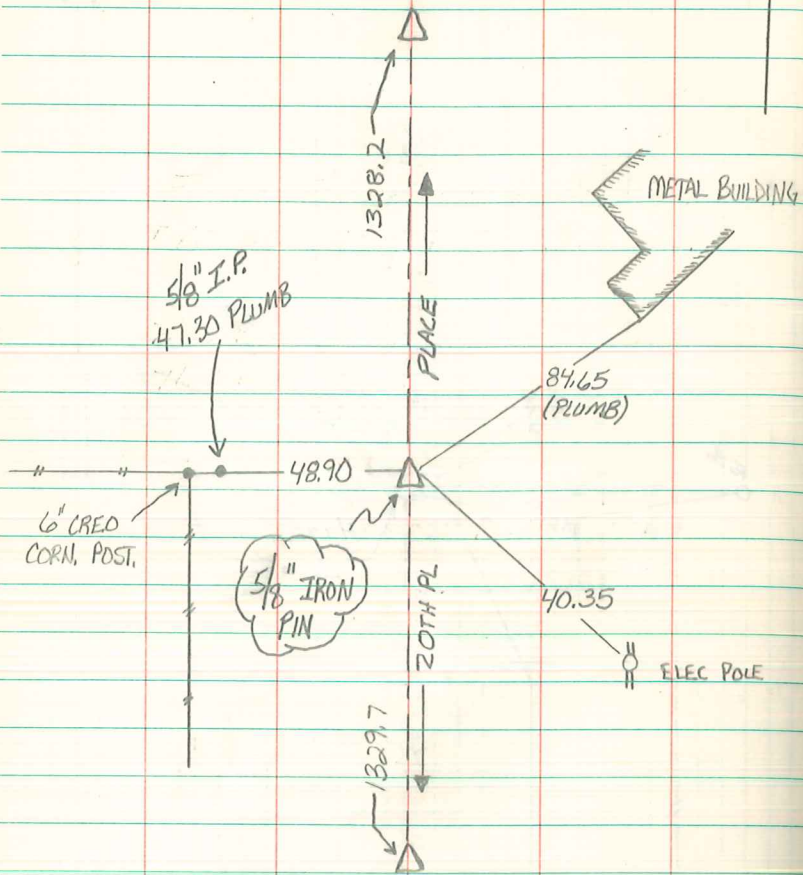 1328.2
METAL BUILDING
5/8" I.P.
47.30 PLUMB
PLACE
84.65
(PLUMB)
48.90
6" CREO
CORN. POST.
5/8" IRON
PIN
20TH PL
40.35
ELEC POLE
1329.7